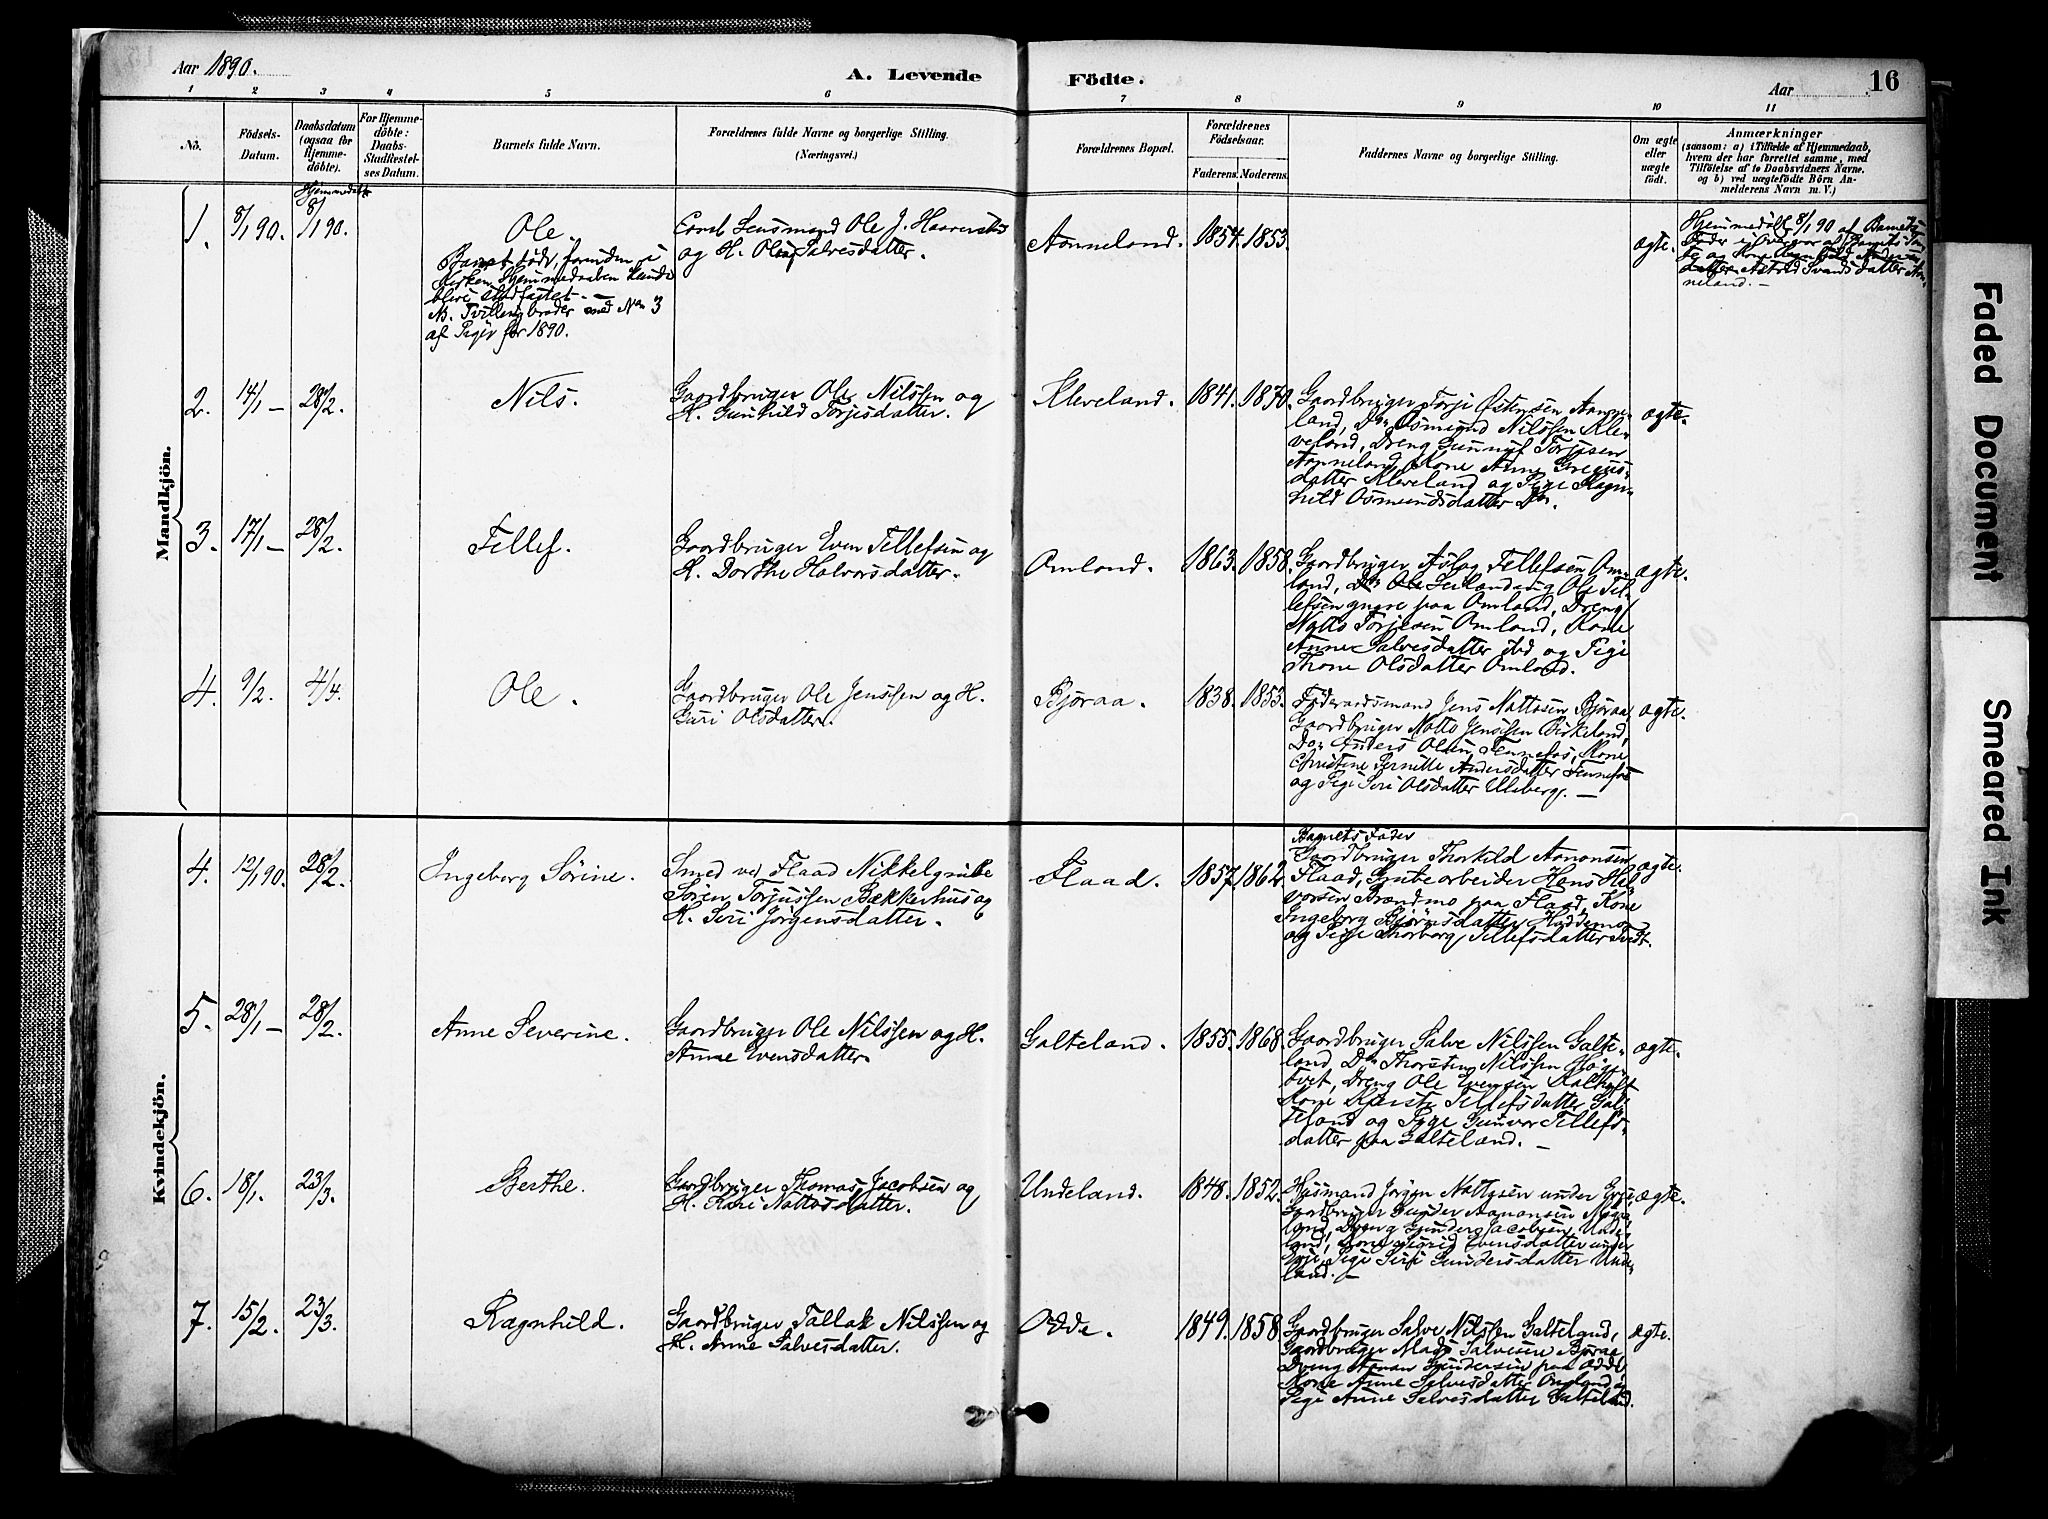 Aar 1890.
A. Levende Födte.
Aar
16
1 2 3 4 5 6 7 8 9 10 11
Nô.
Födsels-
Datum.
Daabsdatum
(ogsaa for
Hjemme-
döbte).
For Hjemme-
döbte:
Daabs-
Stadfæstel-
ses Datum.
Barnets fulde Navn.
Forældrenes fulde Navne og borgerlige Stilling.
(Næringsvei.)
Forældrenes Bopæl.
Forældrenes
Födselsaar.
Faderens. Moderens.
Faddernes Navne og borgerlige Stilling.
Om ægte
eller
uægte
födt.
Anmærkninger
(saasom: a) i Tilfælde af Hjemmedaab,
hvem der har forrettet samme, med
Tilföielse af to Daabsvidners Navne.
og b) ved uægtefödte Börn An-
melderens Navn m. V.)
Mandkjön.
Hjemmedøbt
1. 8/1 90. 8/1 90.
Ole.
Barnet døde, førinden i
Kirken Hjemmedaaben kunde
blive stadfæstet. —
NB. Tvillingbroder med No 3
af Piger for 1890.
Lensmand Ole J. Haverstad
og H. Olea Salvesdatter.
Aanneland. 1854. 1853.
ægte.
Hjemmedøbt 8/1 90 af Barnets
Fader
datter Astrid Svendsdatter Aan-
neland. —
2. 14/1 — 28/2.
Nils.
Gaardbruger Ole Nilssen og
H. Gunhild Torjesdatter.
Kleveland. 1841. 1850.
Gaardbruger Torje Østensen Aanne-
land, Do Osmund Nilssen Kle-
veland, Dreng Gunnuf Torjesen
Aanneland, Kone Anne Gregus-
datter Kleveland og Pige Ragn-
hild Osmundsdatter Do.
ægte.
3. 17/1 — 28/2.
Tellef.
Gaardbruger Even Tellefsen og
H. Dorthe Halvorsdatter.
Omland. 1863. 1858.
Gaardbruger Aslag Tellefsen Om-
land, Do Ole Ole Tel-
lefsen yngre paa Omland, Dreng
Notto Torjesen Omland, Kone
Anne Salvesdatter ibd og Pige
Thone Olsdatter Omland.
ægte.
4. 9/2. 4/4.
Ole.
Gaardbruger Ole Jenssen og H.
Guri Olsdatter.
Bjøraa. 1838. 1853.
Føderaadsmand Jens Nottosen Bjøraa,
Gaardbruger Notto Jenssen Birkeland,
Do Anders Olsen Fennefos, Kone
Christine Pernille Andersdatter Fennefos
og Pige Siri Olsdatter Uleberg. —
ægte.
Kvindekjön.
4. 12/1 90. 28/2.
Ingeborg Sørine.
Smed ved Flaad Nikkelgrube
Søren Torjussen Bakkerhus og
H. Siri Jørgensdatter.
Flaad. 1857. 1862.
Barnets Fader
Gaardbruger Thorkild Aanonsen
Flaad, Grubearbeider Hans Hal-
vorsen Brandmo paa Flaad, Kone
Ingeborg Bjørnsdatter Hoddemo
og Pige Thorborg Tellefsdatter Tvedt.
ægte.
5. 28/1 — 28/2.
Anne Severine.
Gaardbruger Ole Nilssen og H.
Anne Evensdatter.
Galteland. 1855. 1868.
Gaardbruger Salve Nilssen Galte-
land, Do Thorsten Nilssen Høge-
tvet, Dreng Ole Evensen Kalhoft
Kone Kjerste Tellefsdatter Gal-
teland og Pige Gunvor Tellefs-
datter paa Galteland. —
ægte.
6. 18/1. 23/3.
Berthe.
Gaardbruger Thomas Jacobsen og
H. Kari Nottosdatter.
Undeland. 1848. 1852.
Husmand Jørgen Nottosen under Evje,
Gaardbruger Gunder Aanonsen
land, Dreng Gunder Jacobsen Unde-
land, Kone Sigrid Evensdatter under
Evje, Pige Siri Gundersdatter Unde-
land. —
ægte.
7. 15/2. 23/3.
Ragnhild.
Gaardbruger Tallak Nilssen og
H. Anne Salvesdatter.
Odde. 1849. 1858.
Gaardbruger Salve Nilssen Galteland,
Gaardbruger Mads Salvesen Bjøraa,
Dreng Aanon Gundersen paa Odde,
Kone Anne Salvesdatter Omland og
Pige Anne Salvesdatter Galteland.
ægte.
Faded Document
Smeared Ink